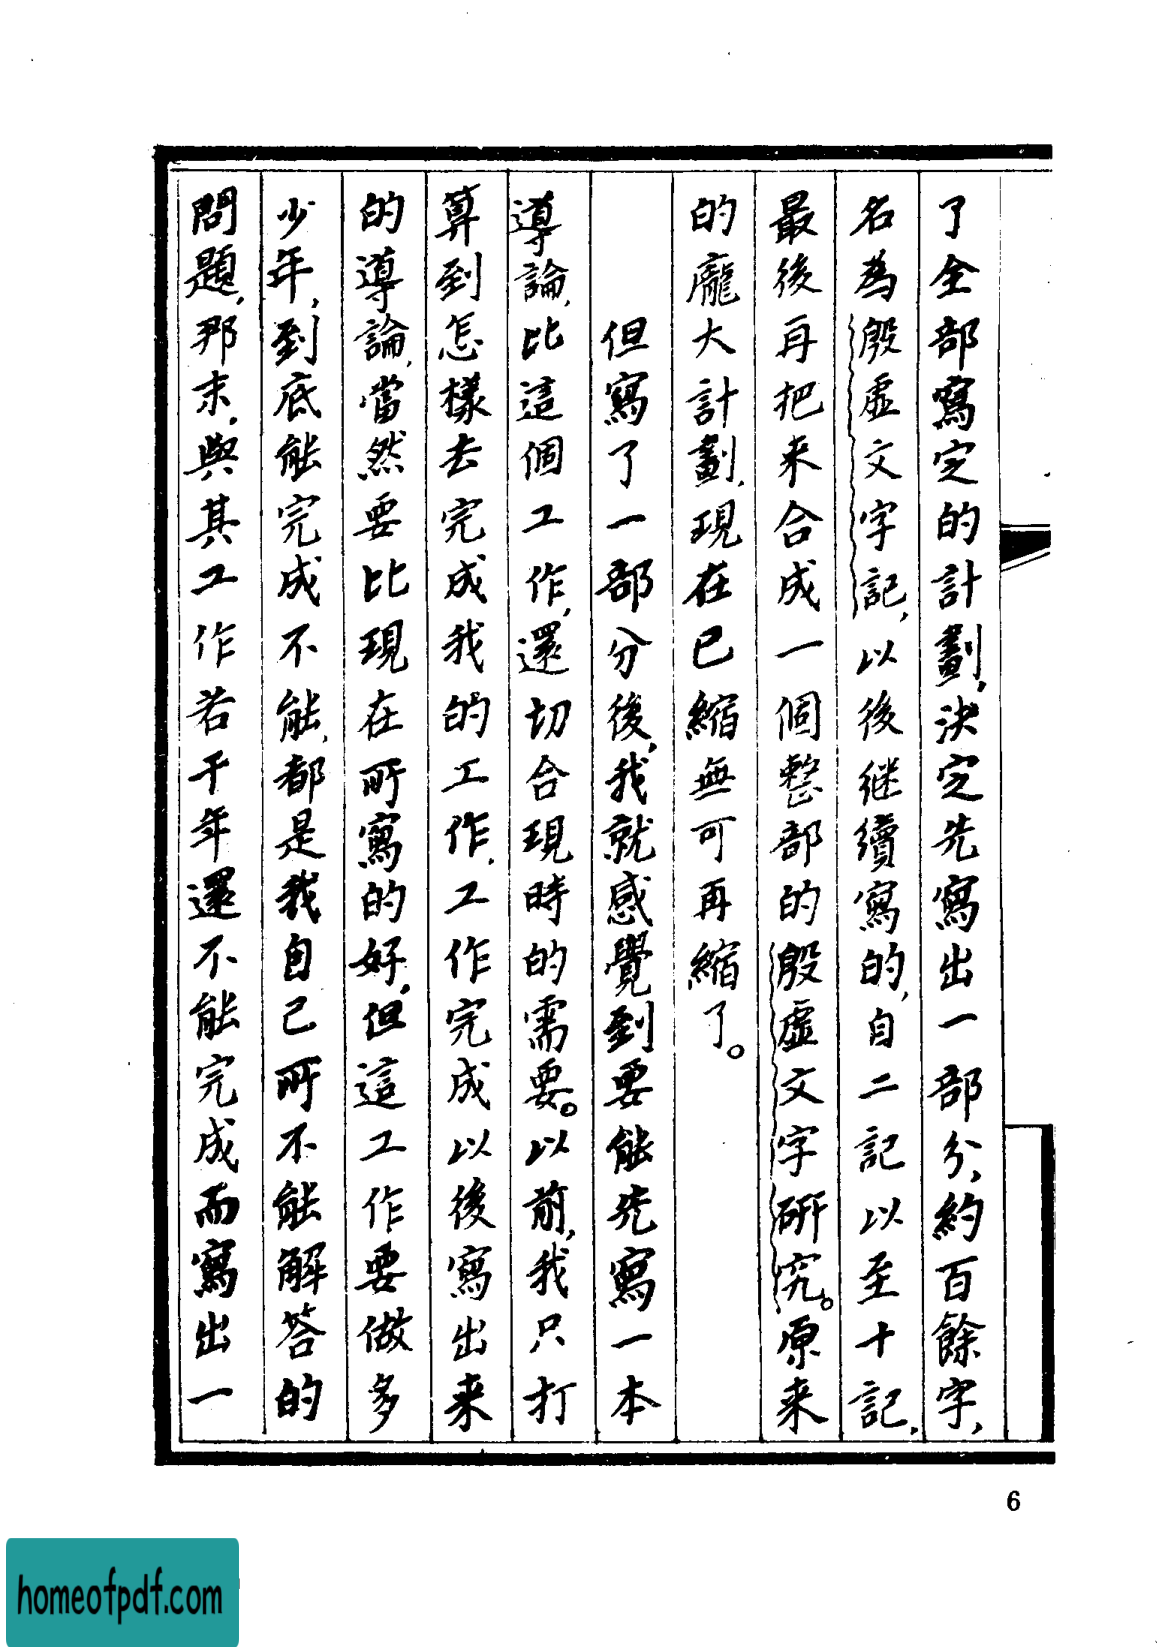 了全部寫定的計劃，決定先寫出一部分，約百餘字，
名為殷虛文字記，以後继續寫的，自二記以至十記，
最後再把来合成一個整部的殷虛文字研究。原来
的龐大計劃，現在已縮無可再縮了。
但寫了一部分後，我就感覺到要能先寫一本
導論，比這個工作，還切合現時的需要。以前，我只打
算到怎樣去完成我的工作，工作完成以後寫出来
的導論，當然要比現在所寫的好，但這工作要做多
少年，到底能完成不能，都是我自己所不能解答的
問題，那末，與其工作若干年還不能完成而寫出一
6
homeofpdf.com